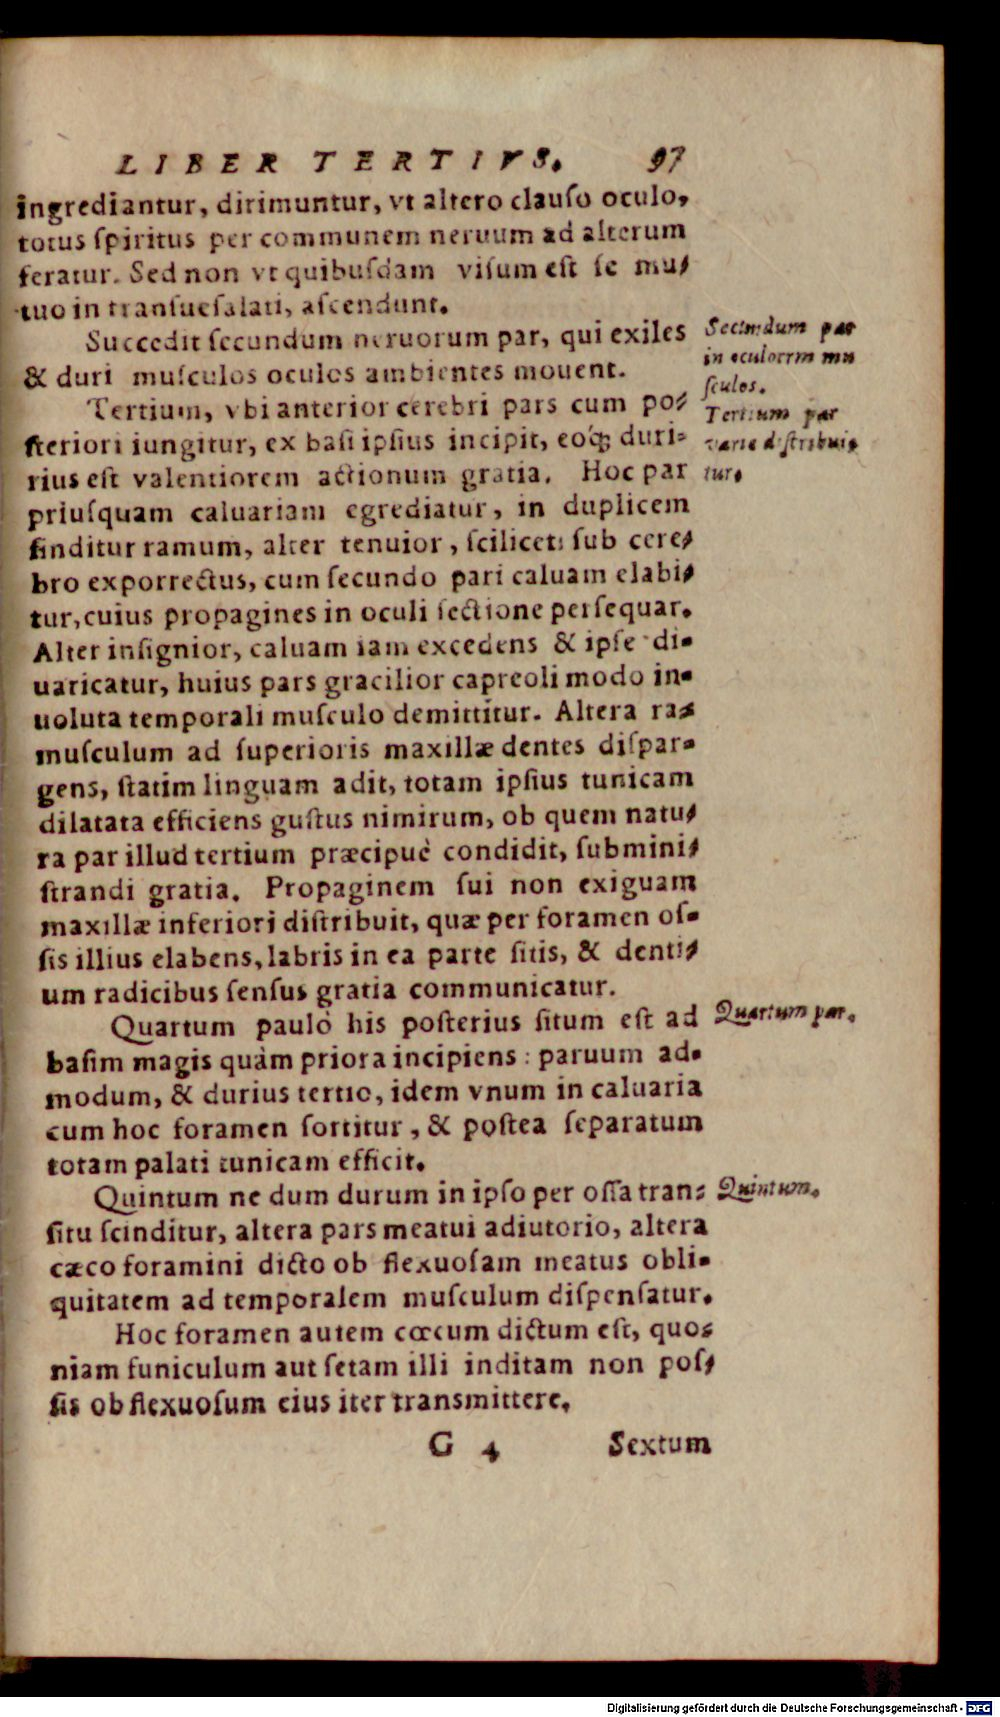 LIBER TERTIVS. 97
ingrediantur, dirimuntur, vt altero clauſo oculo,
totus ſpiritus per communem neruum ad alterum
feratur. Sed non vt quibuſdam viſum eſt ſe mu-
tuo in tranſueſalati, aſcendunt.
Succedit ſecundum neruorum par, qui exiles
& duri muſculos oculos ambientes mouent.
Secundum par
in oculorrm mu
ſculos.
Tertium, vbi anterior cerebri pars cum po-
ſteriori iungitur, ex baſi ipſius incipit, eoq́; duri-
rius eſt valentiorem actionum gratia. Hoc par
Tertium par
varie diſtribui-
tur.
priuſquam caluariam egrediatur, in duplicem
finditur ramum, alter tenuior, ſcilicet: ſub cere-
bro exporrectus, cum ſecundo pari caluam elabi-
tur, cuius propagines in oculi ſectione perſequar.
Alter inſignior, caluam iam excedens & ipſe di-
uaricatur, huius pars gracilior capreoli modo in-
uoluta temporali muſculo demittitur. Altera ra-
muſculum ad ſuperioris maxillæ dentes diſpar-
gens, ſtatim linguam adit, totam ipſius tunicam
dilatata efficiens guſtus nimirum, ob quem natu-
ra par illud tertium præcipuè condidit, ſubmini-
ſtrandi gratia. Propaginem ſui non exiguam
maxillæ inferiori diſtribuit, quæ per foramen oſ-
ſis illius elabens, labris in ea parte ſitis, & denti-
um radicibus ſenſus gratia communicatur.
Quartum pauló his poſterius ſitum eſt ad
Quartum par.
baſim magis quàm priora incipiens : paruum ad-
modum, & durius tertio, idem vnum in caluaria
cum hoc foramen ſortitur, & poſtea ſeparatum
totam palati tunicam efficit.
Quintum ne dum durum in ipſo per oſſa tran-
Quintum.
ſitu ſcinditur, altera pars meatui adiutorio, altera
cæco foramini dicto ob flexuoſam meatus obli-
quitatem ad temporalem muſculum diſpenſatur.
Hoc foramen autem cœcum dictum eſt, quo-
niam funiculum aut ſetam illi inditam non poſ-
ſis ob flexuoſum eius iter transmittere.
G 4 Sextum
Digitalisierung gefördert durch die Deutsche Forschungsgemeinschaft - DFG